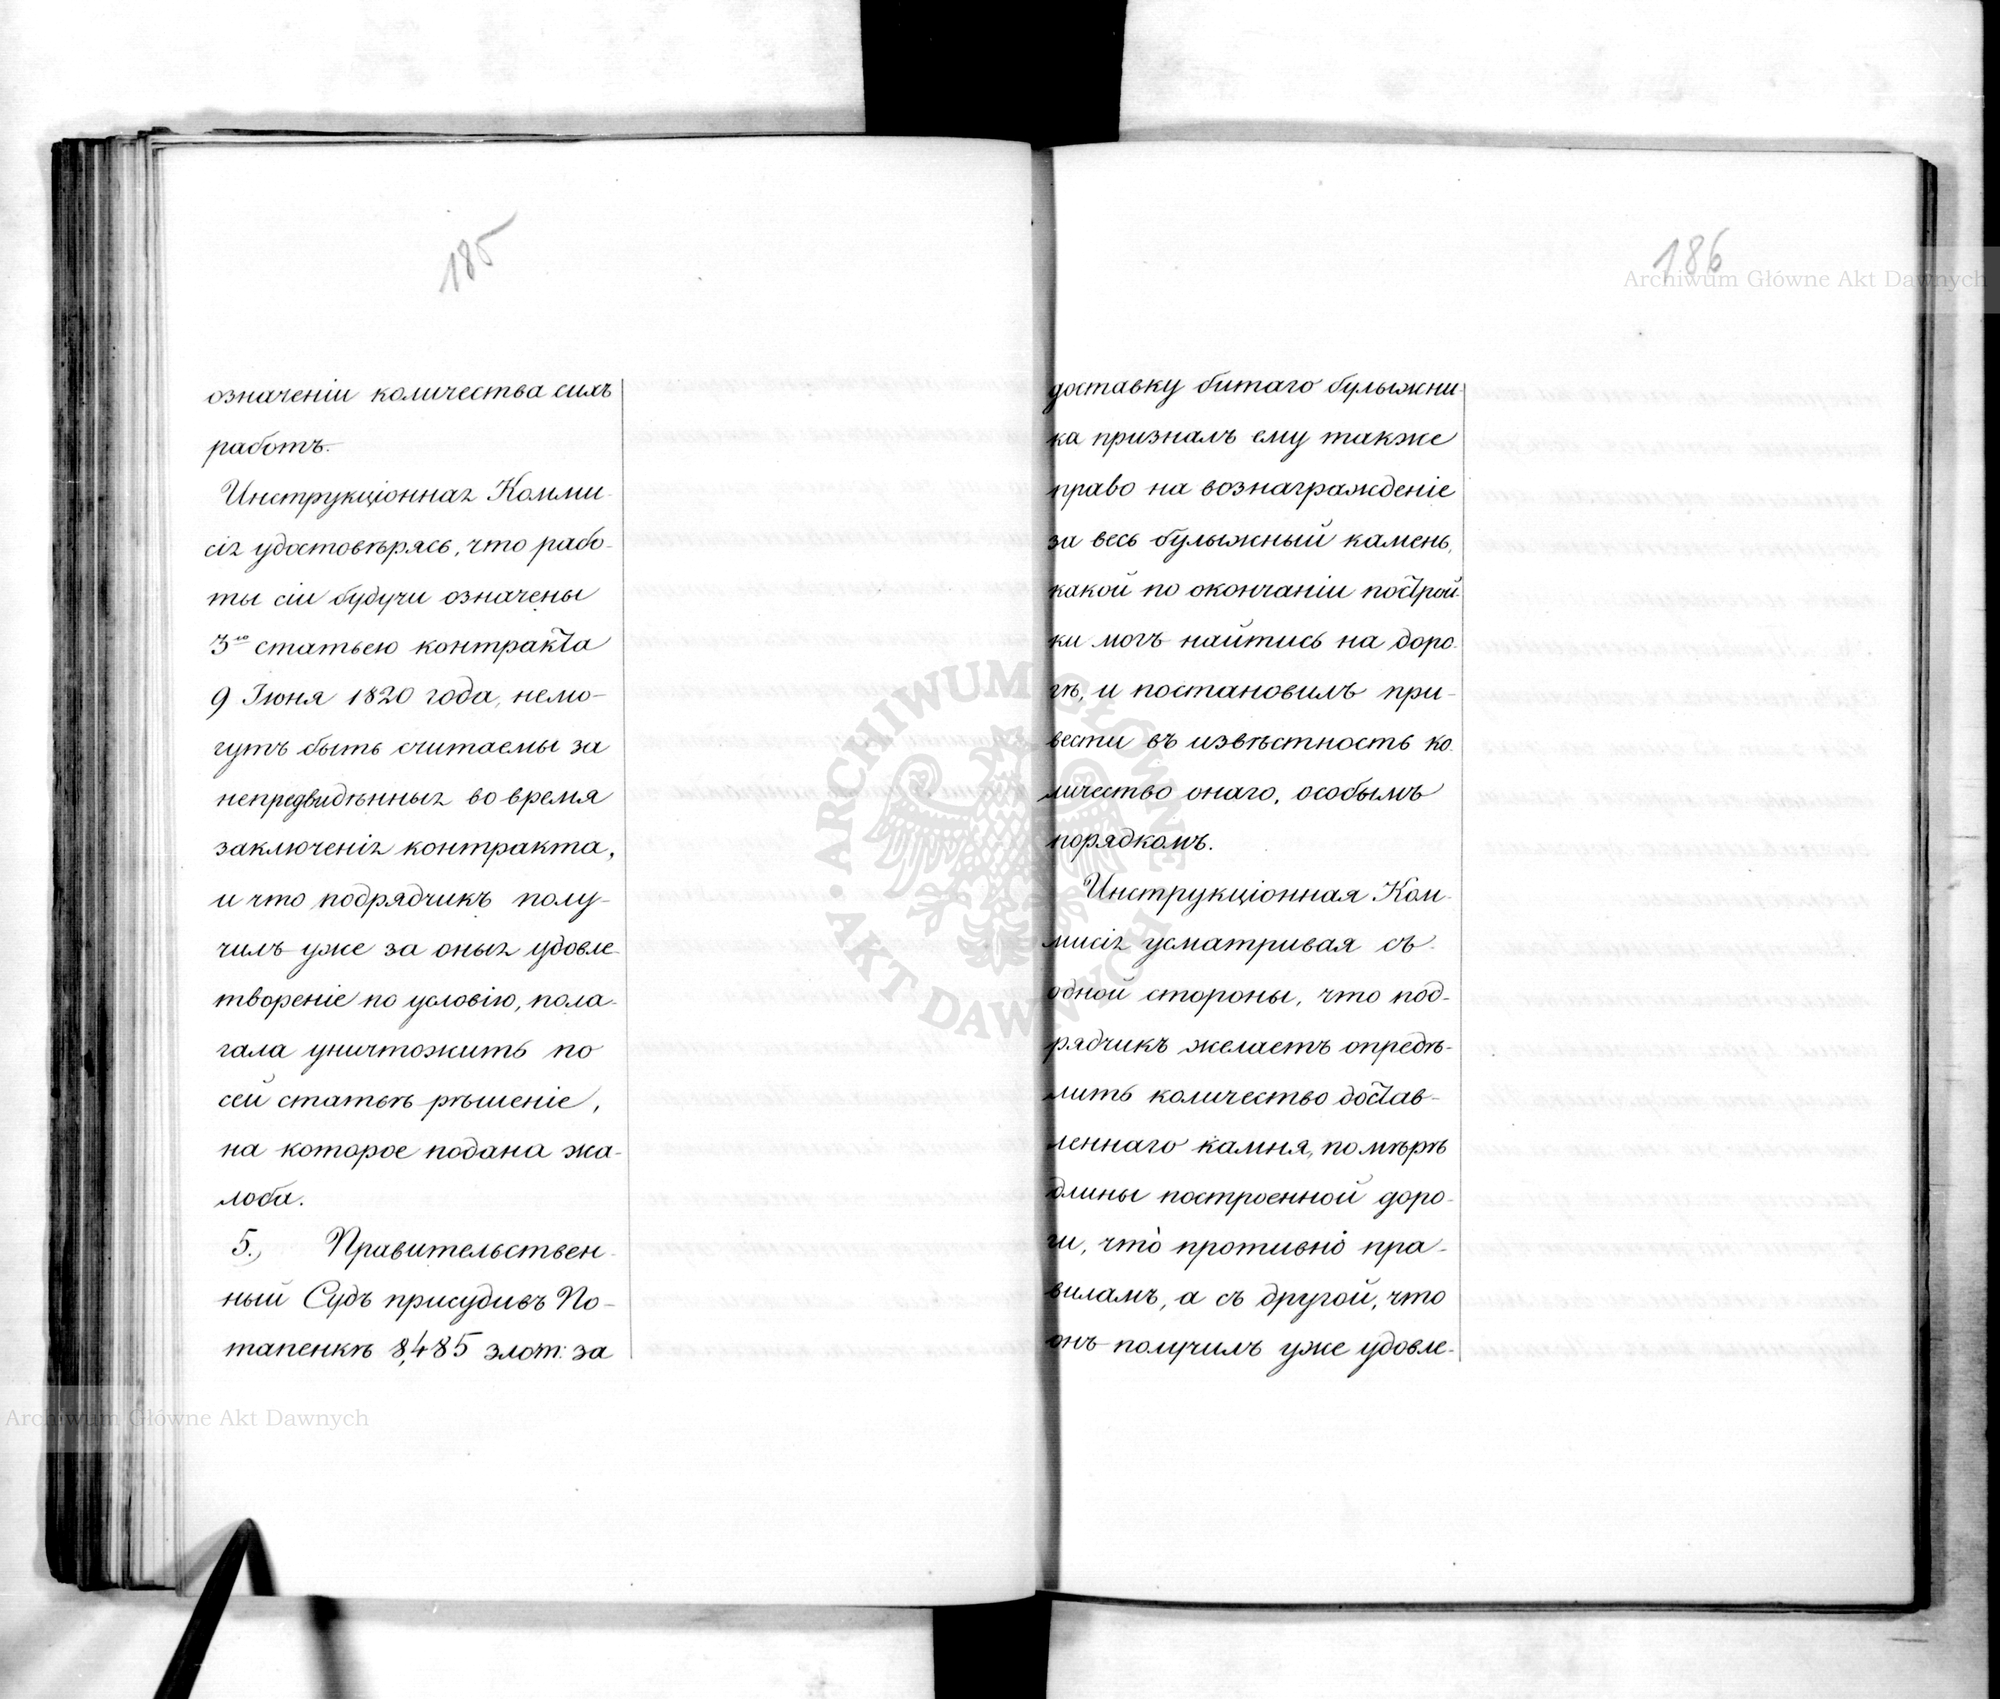 185
означеніи количества сихъ
работъ.
Инструкціонная Комми-
сія удостовѣрясь, что рабо-
ты сіи будучи означены
3ю статьею контракта
9 Іюня 1820 года, немо-
гутъ быть считаемы за
непредвидѣнныя во время
заключенія контракта,
и что подрядчикъ полу-
чилъ уже за оныя удовле-
твореніе по условію, пола-
гала уничтожить по
сей статьѣ рѣшеніе,
на которое подана жа-
лоба.
5., Правительствен-
ный Судъ присудивъ По-
тапенкѣ 8,485 злот: за
186
доставку битаго булыжни-
ка призналъ ему также
право на вознагражденіе
за весь булыжный камень,
какой по окончаніи построй-
ки могъ найтись на доро-
гѣ, и постановилъ при-
вести въ извѣстность ко-
личество онаго, особымъ
порядкомъ.
Инструкціонная Ком-
мисія усматривая съ
одной стороны, что под-
рядчикъ желаетъ опредѣ-
лить количество достав-
леннаго камня, по мѣрѣ
длины построенной доро-
ги, что̀ противно пра-
виламъ, а съ другой, что
онъ получилъ уже удовле-
Archiwum Główne Akt Dawnych
Archiwum Główne Akt Dawnych
ARCHIWUM GŁÓWNE AKT DAWNYCH